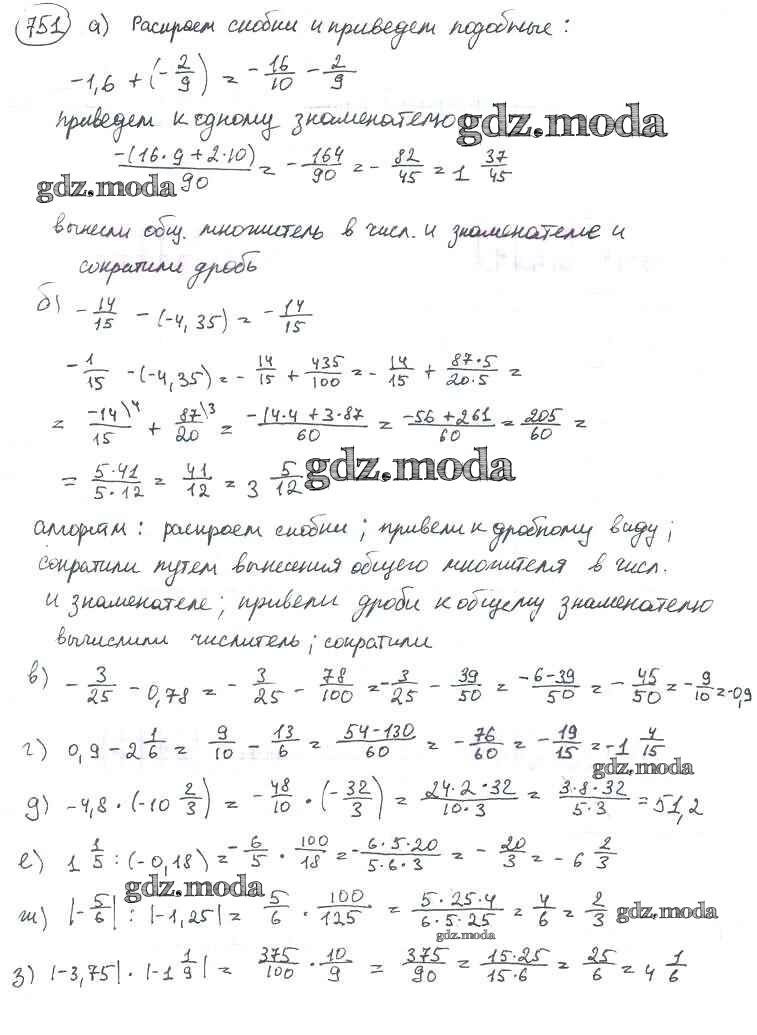 751 а) Раскроем скобки и приведем подобные:
-1,6 + (-2/9) = -16/10 - 2/9
приведем к одному знаменателю gdz.moda
-(16·9+2·10)/90 = -164/90 = -82/45 = 1 37/45
gdz.moda
вынесли общ. множитель в числ. и знаменателе и
сократили дробь
б) -14/15 - (-4,35) = -14/15
-1/15 - (-4,35) = -14/15 + 435/100 = -14/15 + 87·5/20·5 =
= -14\4/15 + 87\3/20 = -14·4+3·87/60 = -56+261/60 = 205/60 =
= 5·41/5·12 = 41/12 = 3 5/12 gdz.moda
алгоритм: раскроем скобки; привели к дробному виду;
сократили путем вынесения общего множителя в числ.
и знаменателе; привели дроби к общему знаменателю
вычислили числитель; сократили
в) -3/25 - 0,78 = -3/25 - 78/100 = -3/25 - 39/50 = -6-39/50 = -45/50 = -9/10 = -0,9
г) 0,9 - 2 1/6 = 9/10 - 13/6 = 54-130/60 = -76/60 = -19/15 = -1 4/15
gdz.moda
д) -4,8 · (-10 2/3) = -48/10 · (-32/3) = 24·2·32/10·3 = 3·8·32/5·3 = 51,2
е) 1 1/5 : (-0,18) = -6/5 · 100/18 = -6·5·20/5·6·3 = -20/3 = -6 2/3
gdz.moda
ж) |-5/6| : |-1,25| = 5/6 · 100/125 = 5·25·4/6·5·25 = 4/6 = 2/3 gdz.moda
gdz.moda
з) |-3,75| · |-1 1/9| = 375/100 · 10/9 = 375/90 = 15·25/15·6 = 25/6 = 4 1/6